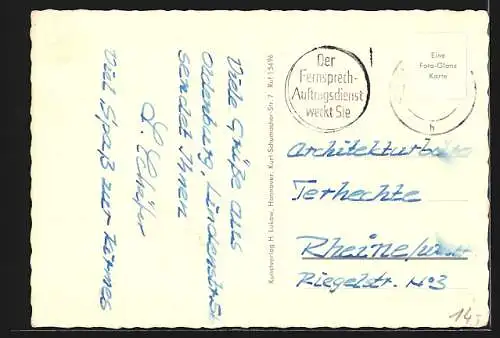 Viele Grüße aus
Oldenburg, Lindenstraße
sendet Ihnen
L. Schäfer
Viel Spaß zur Kirmes
Kunstverlag H. Lukow, Hannover, Kurt-Schumacher-Str. 7 Ruf 15496
Der
Fernsprech-
Auftragsdienst
weckt Sie
h
Eine
Foto-Glanz
Karte
Architekturbüro
Terhechte
Rheine/Westf.
Riegelstr. No 3
14,-